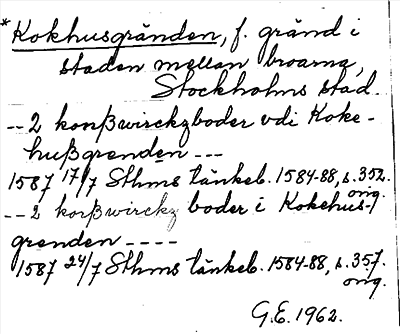 *Kokhusgränden, f. gränd i
staden mellan broarna,
Stockholms stad.
--2 konßwirckzboder vdi Koke-
hußgrenden ---
1587 17/7 Sthms tänkeb. 1584-88, s. 352.
orig.
--2 korßwirckz boder i Kokehus-
grenden ----
1587 24/7 Sthms tänkeb. 1584-88, s. 357.
orig.
G.E. 1962.